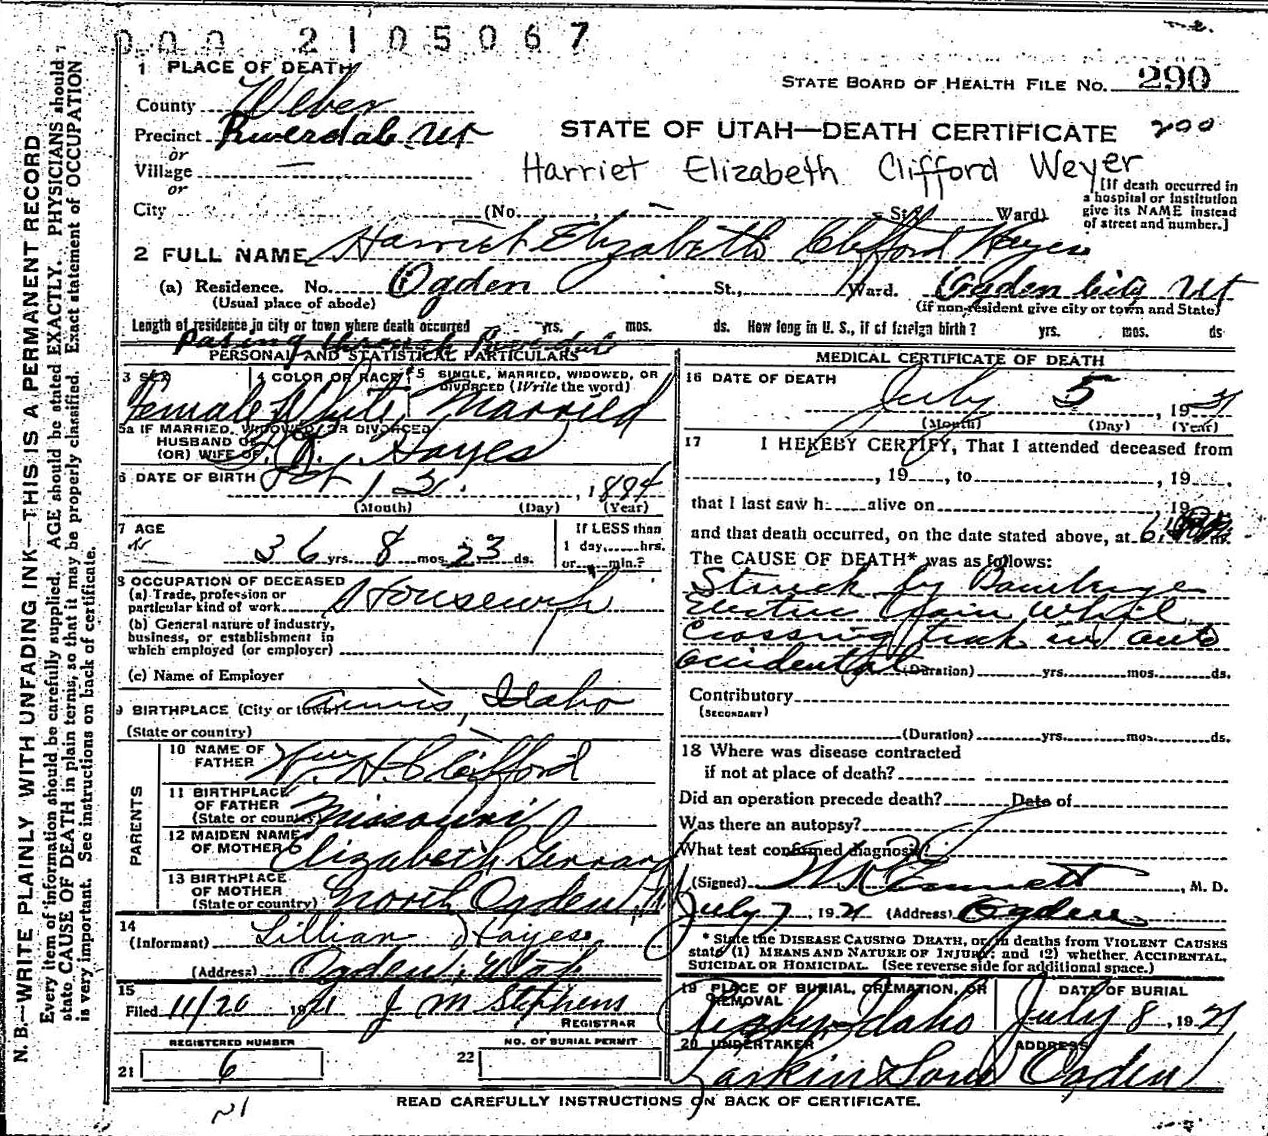 000 2105067
1 PLACE OF DEATH
STATE BOARD OF HEALTH FILE No. 290
County Weber
Precinct Riverdale Ut
STATE OF UTAH—DEATH CERTIFICATE 200
or
Village —
Harriet Elizabeth Clifford Weyer
or
[If death occurred in
a hospital or institution
give its NAME instead
of street and number.]
City (No. , St., Ward)
2 FULL NAME Harriet Elizabeth Clifford Hayes
(a) Residence. No. Ogden St., Ward. Ogden City Ut
(Usual place of abode) (If non-resident give city or town and State)
Length of residence in city or town where death occurred yrs. mos. ds. How long in U. S., if of foreign birth? yrs. mos. ds
Pasing through Riverdale
PERSONAL AND STATISTICAL PARTICULARS
3 SEX
4 COLOR OR RACE
5 SINGLE, MARRIED, WIDOWED, OR
DIVORCED (Write the word)
Female White Married
5a IF MARRIED, WIDOWED, OR DIVORCED
HUSBAND OF
(OR) WIFE OF R. Hayes
6 DATE OF BIRTH Oct 13 , 1884
(Month) (Day) (Year)
7 AGE
36 yrs. 8 mos. 23 ds.
If LESS than
1 day,......hrs.
or......min.?
8 OCCUPATION OF DECEASED
(a) Trade, profession or
particular kind of work Housewife
(b) General nature of industry,
business, or establishment in
which employed (or employer)
(c) Name of Employer
9 BIRTHPLACE (City or town) Annis, Idaho
(State or country)
PARENTS
10 NAME OF
FATHER Wm. H. Clifford
11 BIRTHPLACE
OF FATHER
(State or country) Missouri
12 MAIDEN NAME
OF MOTHER Elizabeth Gerrard
13 BIRTHPLACE
OF MOTHER
(State or country) North Ogden,
14
(Informant) Lillian Hayes
(Address) Ogden, Utah
15
Filed 11/20 1921 J M Stephens
REGISTRAR
REGISTERED NUMBER
21 6
22 NO. OF BURIAL PERMIT
MEDICAL CERTIFICATE OF DEATH
16 DATE OF DEATH
July 5 , 1921
(Month) (Day) (Year)
17 I HEREBY CERTIFY, That I attended deceased from
, 19 , to , 19
that I last saw h alive on 19
and that death occurred, on the date stated above, at 6 m.
The CAUSE OF DEATH* was as follows:
Struck by Bamberger
Electric train while
crossing track in auto
accidental (Duration) yrs. mos. ds.
Contributory
(SECONDARY)
(Duration) yrs. mos. ds.
18 Where was disease contracted
if not at place of death?
Did an operation precede death? Date of
Was there an autopsy?
What test confirmed diagnosis?
(Signed) , M. D.
July 7, 1921 (Address) Ogden
* State the DISEASE CAUSING DEATH, or, in deaths from VIOLENT CAUSES
state (1) MEANS AND NATURE OF INJURY; and (2) whether ACCIDENTAL,
SUICIDAL OR HOMICIDAL. (See reverse side for additional space.)
19 PLACE OF BURIAL, CREMATION, OR
REMOVAL
DATE OF BURIAL
Rigby Idaho July 8 , 1921
20 UNDERTAKER ADDRESS
Larkin & Sons Ogden
READ CAREFULLY INSTRUCTIONS ON BACK OF CERTIFICATE.
N. B.—WRITE PLAINLY WITH UNFADING INK—THIS IS A PERMANENT RECORD
Every item of information should be carefully supplied. AGE should be stated EXACTLY. PHYSICIANS should
state CAUSE OF DEATH in plain terms, so that it may be properly classified. Exact statement of OCCUPATION
is very important. See instructions on back of certificate.